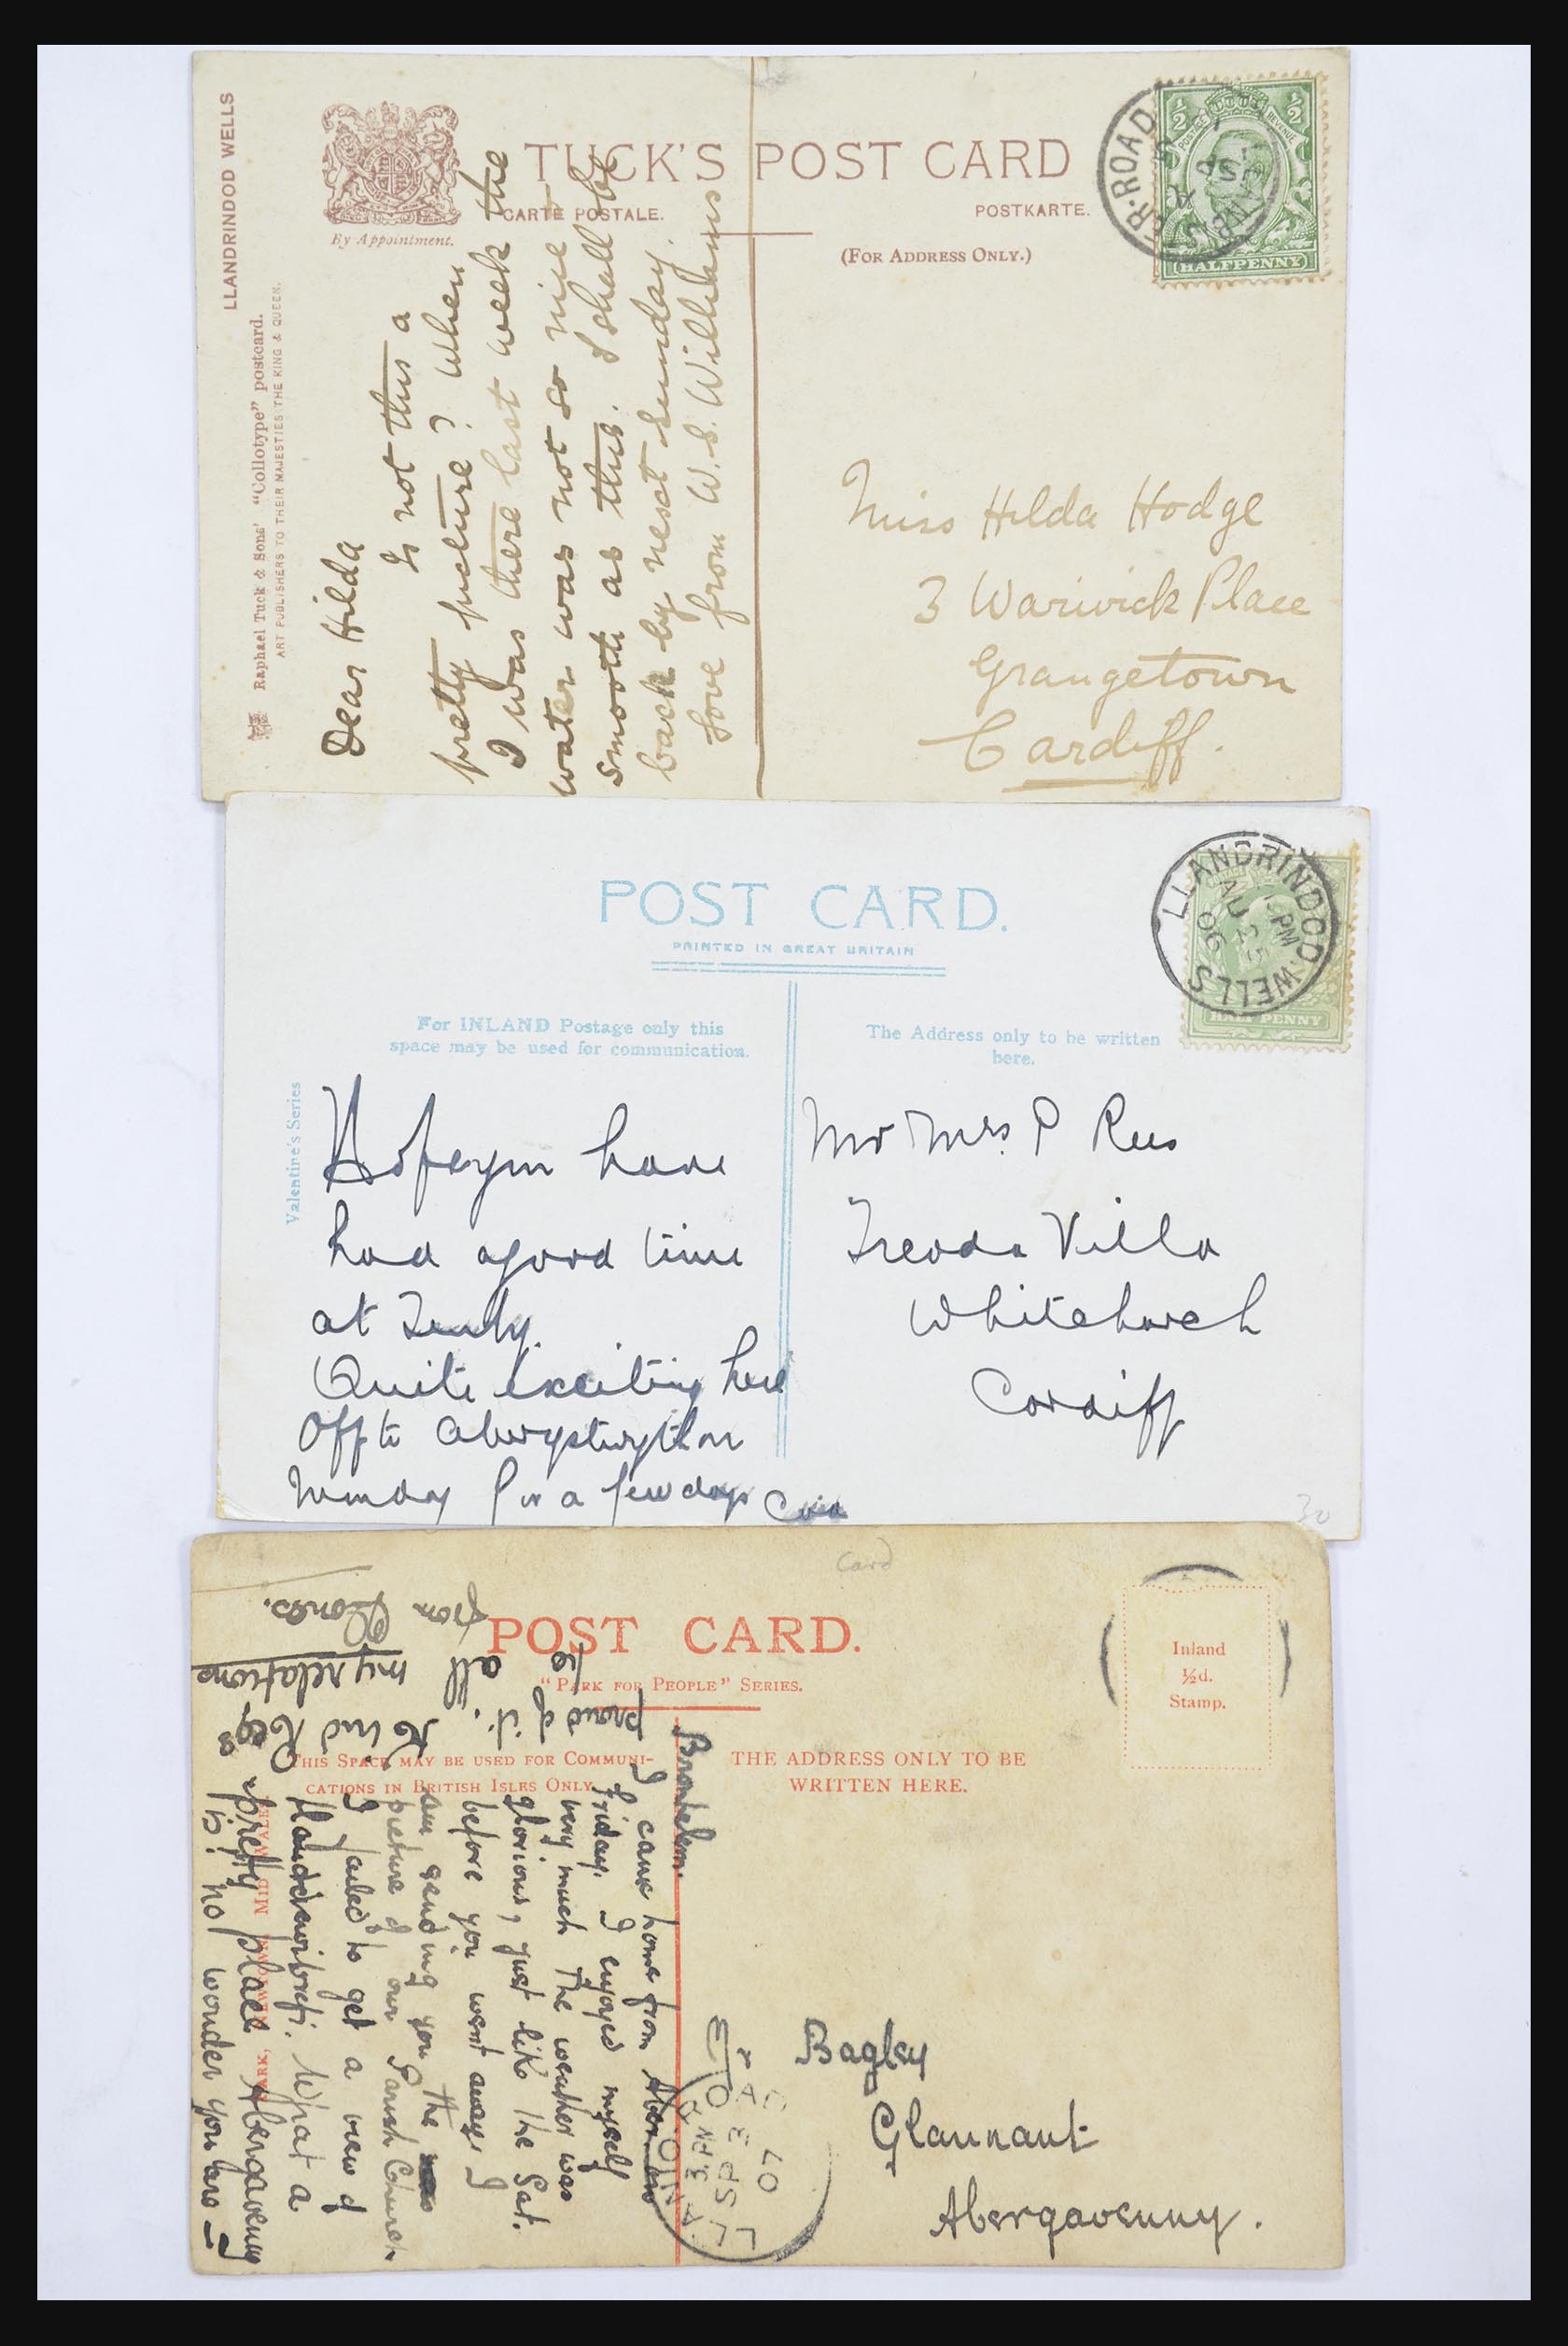 LLANDRINDOD WELLS
Raphael Tuck & Sons' "Collotype" postcard.
ART PUBLISHERS TO THEIR MAJESTIES THE KING & QUEEN.
By Appointment.
TUCK'S POST CARD
CARTE POSTALE.
POSTKARTE.
(FOR ADDRESS ONLY.)
R. ROAD
1/2 1/2
POSTAGE REVENUE
HALFPENNY
Dear Hilda
Is not this a
pretty picture? When
I was there last week the
water was not so nice &
smooth as this. I shall be
back by next Sunday.
Love from W. S. Williams
Miss Hilda Hodge
3 Warwick Place
Grangetown
Cardiff.
POST CARD.
PRINTED IN GREAT BRITAIN
For INLAND Postage only this
space may be used for communication.
The Address only to be written
here.
Valentine's Series
LLANDRINDOD. WELLS
PM
AU 25
06
HALF PENNY
Hope you have
had a good time
at
Quite exciting here
Off to Aberystwyth on
Monday for a few days
Mr Mrs. P Rees
Treoda Villa
Whitchurch
Cardiff
30
Card
POST CARD.
"PARK FOR PEOPLE" SERIES.
THIS SPACE MAY BE USED FOR COMMUNI-
CATIONS IN BRITISH ISLES ONLY.
THE ADDRESS ONLY TO BE
WRITTEN HERE.
Inland
½d.
Stamp.
PARK, NEWTOWN, MID WALES.
I came home from Aber on
Friday. I enjoyed myself
very much The weather was
glorious, just like the Sat.
before you went away. I
am sending you the
picture of our Parish Church
I failed to get a view of
What a
pretty place Abergavenny
is! no wonder you are
proud of it. Kind Regs
to all my relations
from
3. PM
SP 3
07
Bagley
Glannant
Abergavenny.